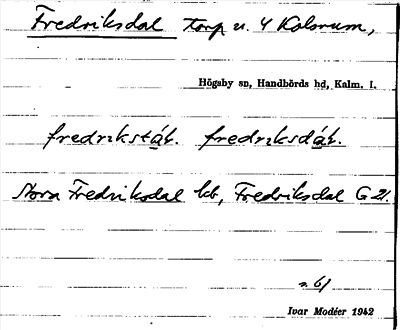 Fredriksdal torp u. 4 Kolsrum,
Högsby sn, Handbörds hd, Kalm. l.
fredrikstáḷ. fredriksdáḷ.
Stora Fredriksdal kb, Fredriksdal G 21.
s. 61
Ivar Modéer 1942